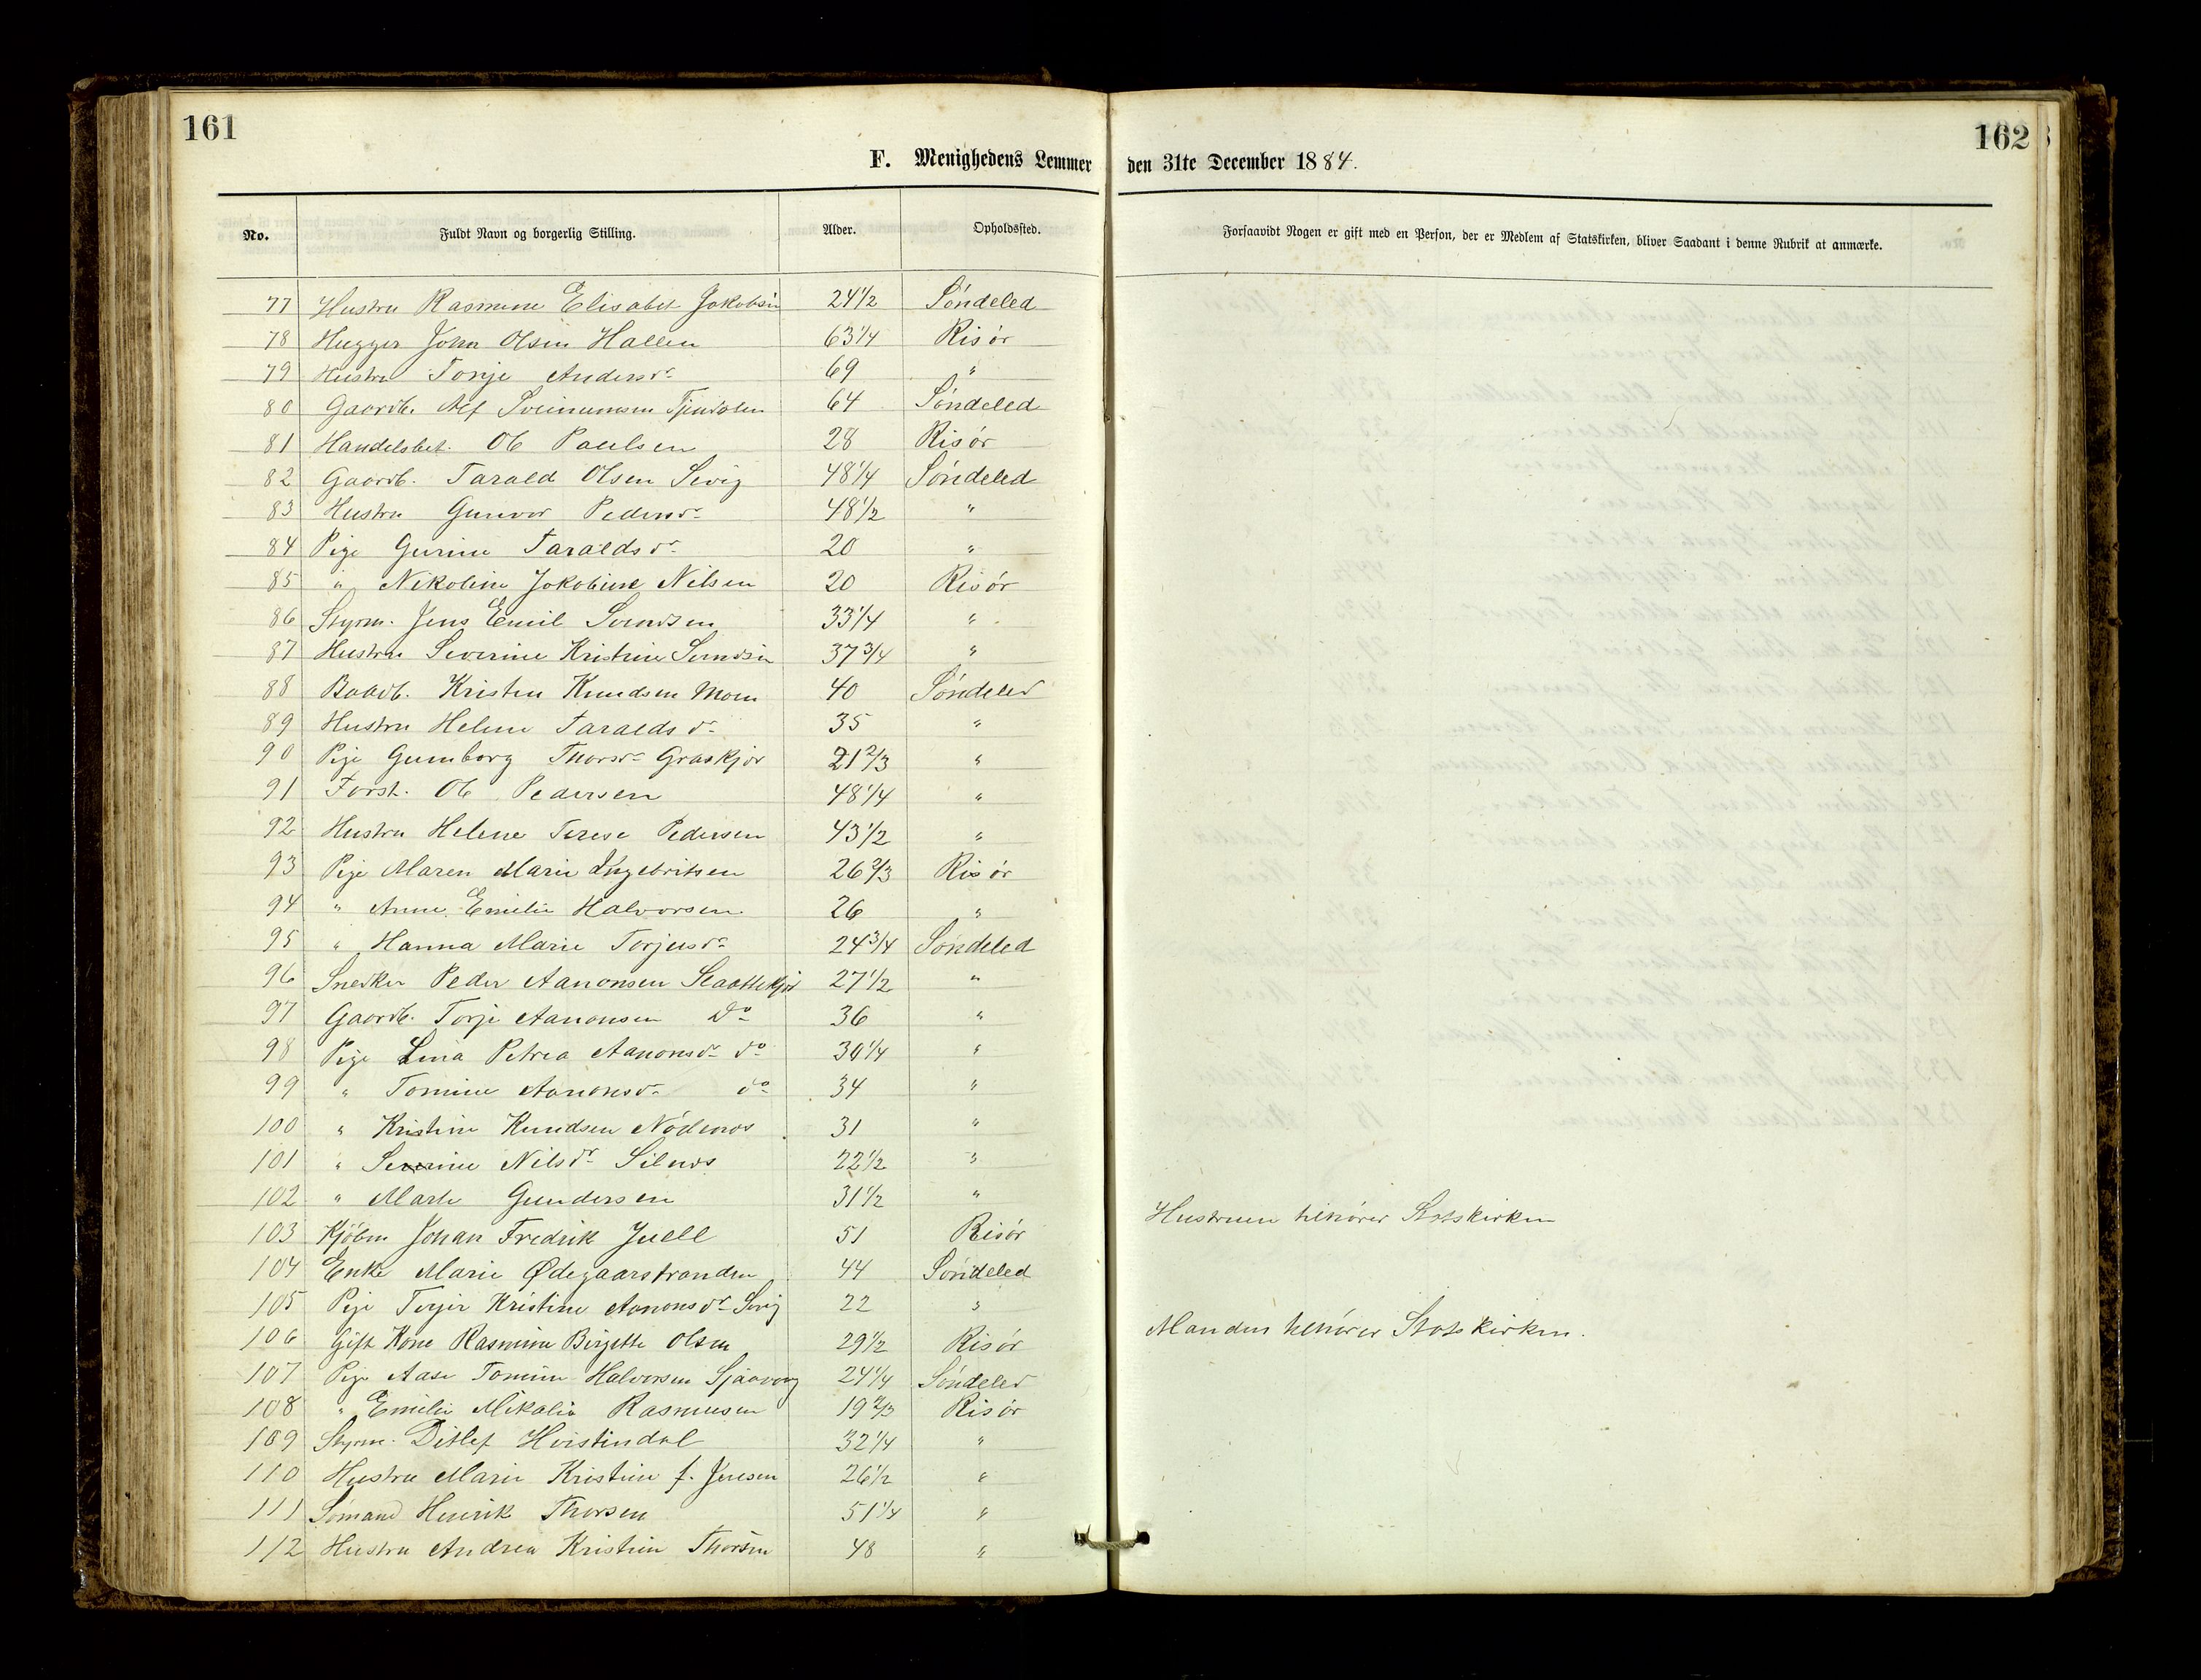 161
162
F. Menighedens Lemmer den 31te December 1884.
No. Fuldt Navn og borgerlig Stilling. Alder. Opholdssted. Forsaavidt Nogen er gift med en Person, der er Medlem af Statskirken, bliver Saadant i denne Rubrik at anmærke.
77 Hustru Rasmine Elisabet Jakobsen 24 1/2 Söndeled
78 Hugger John Olsen Hallen 63 1/4 Risör
79 Hustru Tonje Andersdr 69 "
80 Gaardb. Alf 64 Söndeled
81 Handelsbet. Ole Paulsen 28 Risör
82 Gaardb. Tarald Olsen Sevig 48 1/4 Söndeled
83 Hustru Gunvor Pedersdr 48 1/2 "
84 Pige Gurine Taraldsdr 20 "
85 " Nikoline Jokobine Nilsen 20 Risör
86 Styrm. Jens Emil Svendsen 33 1/4 "
87 Hustru Severine Kristine Svendsen 37 3/4 "
88 Baadb. Kristen Knudsen Moen 40 Söndeled
89 Hustru Helene Taraldsdr 35 "
90 Pige Gumborg Thorsdr Graskjær 21 2/3 "
91 Forst. Ole Pedersen 48 1/4 "
92 Hustru Helene Terese Pedersen 43 1/2 "
93 Pige Maren Marie Ingebritsen 26 2/3 Risör
94 " Anne Emilie Halvorsen 26 "
95 " Hanna Marie Torjusdr 24 3/4 Söndeled
96 Snedker Peder Aanonsen Slaattekjær 27 1/2 "
97 Gaardb. Torje Aanonsen Do 36 "
98 Pige Lina Petrea Aanonsdr do 30 1/4 "
99 " Tomine Aanonsdr do 34 "
100 " Kristine Knudsen 31 "
101 " Severine Nilsdr 22 1/2 "
102 " Marte Gundersen 31 1/2 "
103 Kjöbm Johan Fredrik Juell 51 Risör Hustruen tilhörer Statskirken
104 Enke Marie Ødegaarstranden 44 Söndeled
105 Pige Kristine Aanonsdr Sevig 22 "
106 Gift Kone Rasmine Birgitte Olsen 29 1/2 Risör Manden tilhörer Statskirken.
107 Pige Aase Tomine Halvorsen Sjaavaag 24 1/4 Söndeled
108 " Emilie Mikalia Rasmusen 19 2/3 Risör
109 Styrm. Ditlef Hvistendal 32 1/4 "
110 Hustru Marie Kristine f. Jensen 26 1/2 "
111 Sömand Henrik Thorsen 51 1/4 "
112 Hustru Andrea Kristine Thorsen 48 "